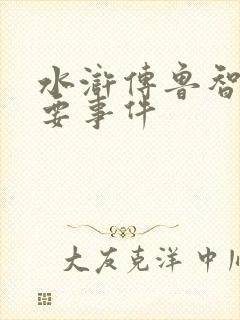 水滸傳魯智
要事件
大友克洋 中